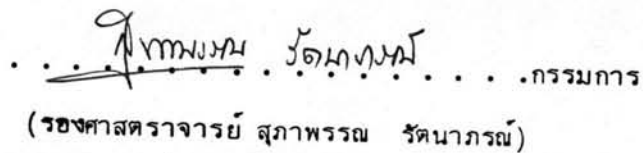 สุภาพรรณ รัตนาภรณ์ กรรมการ
(รองศาสตราจารย์ สุภาพรรณ รัตนาภรณ์)